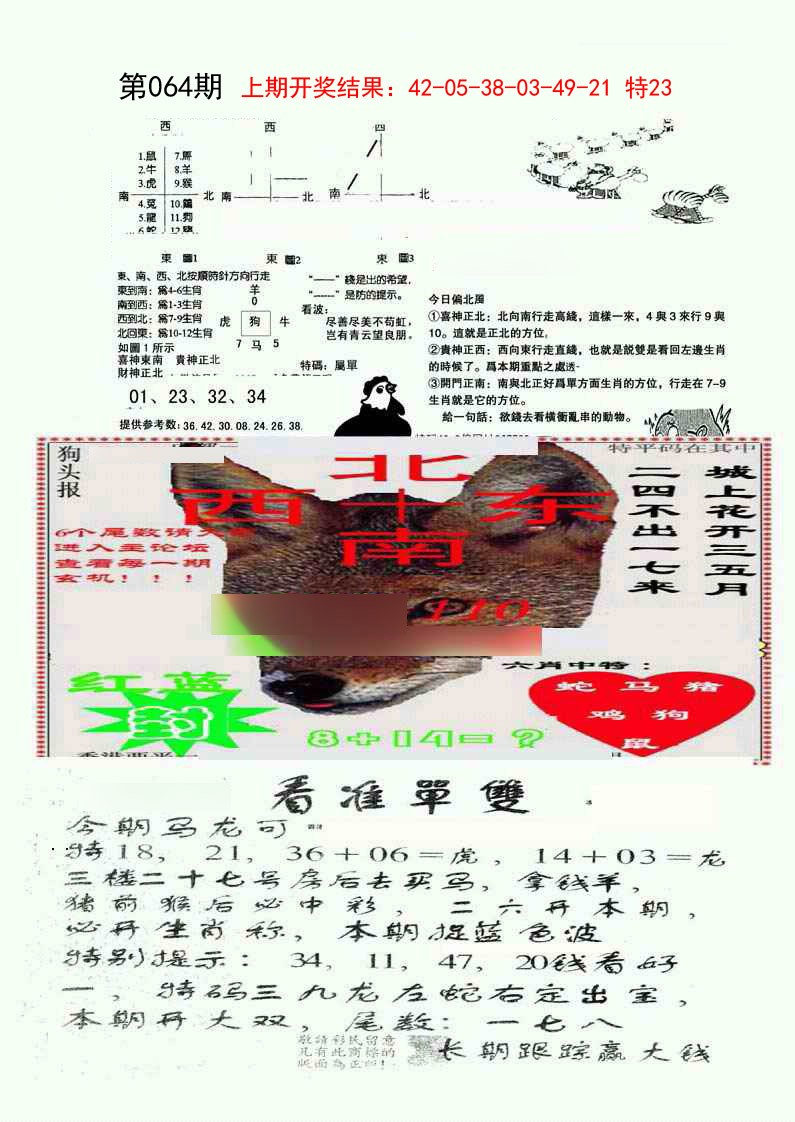 第064期 上期开奖结果：42-05-38-03-49-21 特23
西
1.鼠 7.馬
2.牛 8.羊
3.虎 9.猴
南 北
4.兔 10.鷄
5.龍 11.狗
東 圖1
西
南 北
東 圖2
南 北
圖3
東、南、西、北按順時針方向行走
東到南：爲4-6生肖
南到西：爲1-3生肖
西到北：爲7-9生肖
北回東：爲10-12生肖
如圖1所示
喜神東南 貴神正北
財神正北
羊
0
虎 狗 牛
7 马 5
“——”綫是出的希望，
“------”是防的提示。
看波：
尽善尽美不苟虹，
岂有青云望良朋。
特碼：屬單
01、23、32、34
提供参考数：36.42.30.08.24.26.38.
今日偏北風
①喜神正北：北向南行走高綫，這樣一來，4與3來行9與
10。這就是正北的方位。
②貴神正西：西向東行走直綫，也就是説雙是看回左邊生肖
的時候了。爲本期重點之處透-
③開門正南：南與北正好爲單方面生肖的方位，行走在7-9
生肖就是它的方位。
給一句話：欲錢去看橫衝亂串的動物。
狗头报
特平码在其中
北
西十东
南
城上花开三五月
二四不出一七来
进入主论坛
查看每一期
玄机！！！
110
六肖中特：
蛇 马 猪
鸡 狗
鼠
红蓝
封
8+14=？
看准單雙
今期马龙可
特18，21，36+06=虎，14+03=龙
三楼二十七号房后去买马，拿钱羊，
猪前猴后必中彩，二六开本期，
必开生肖称，本期捉蓝色波
特别提示：34，11，47，20钱看好
一，特码三九龙左蛇右定出宝，
本期开大双，尾数：一七八
敬請彩民留意
凡有此商標的
版面為正版！
长期跟踪赢大钱